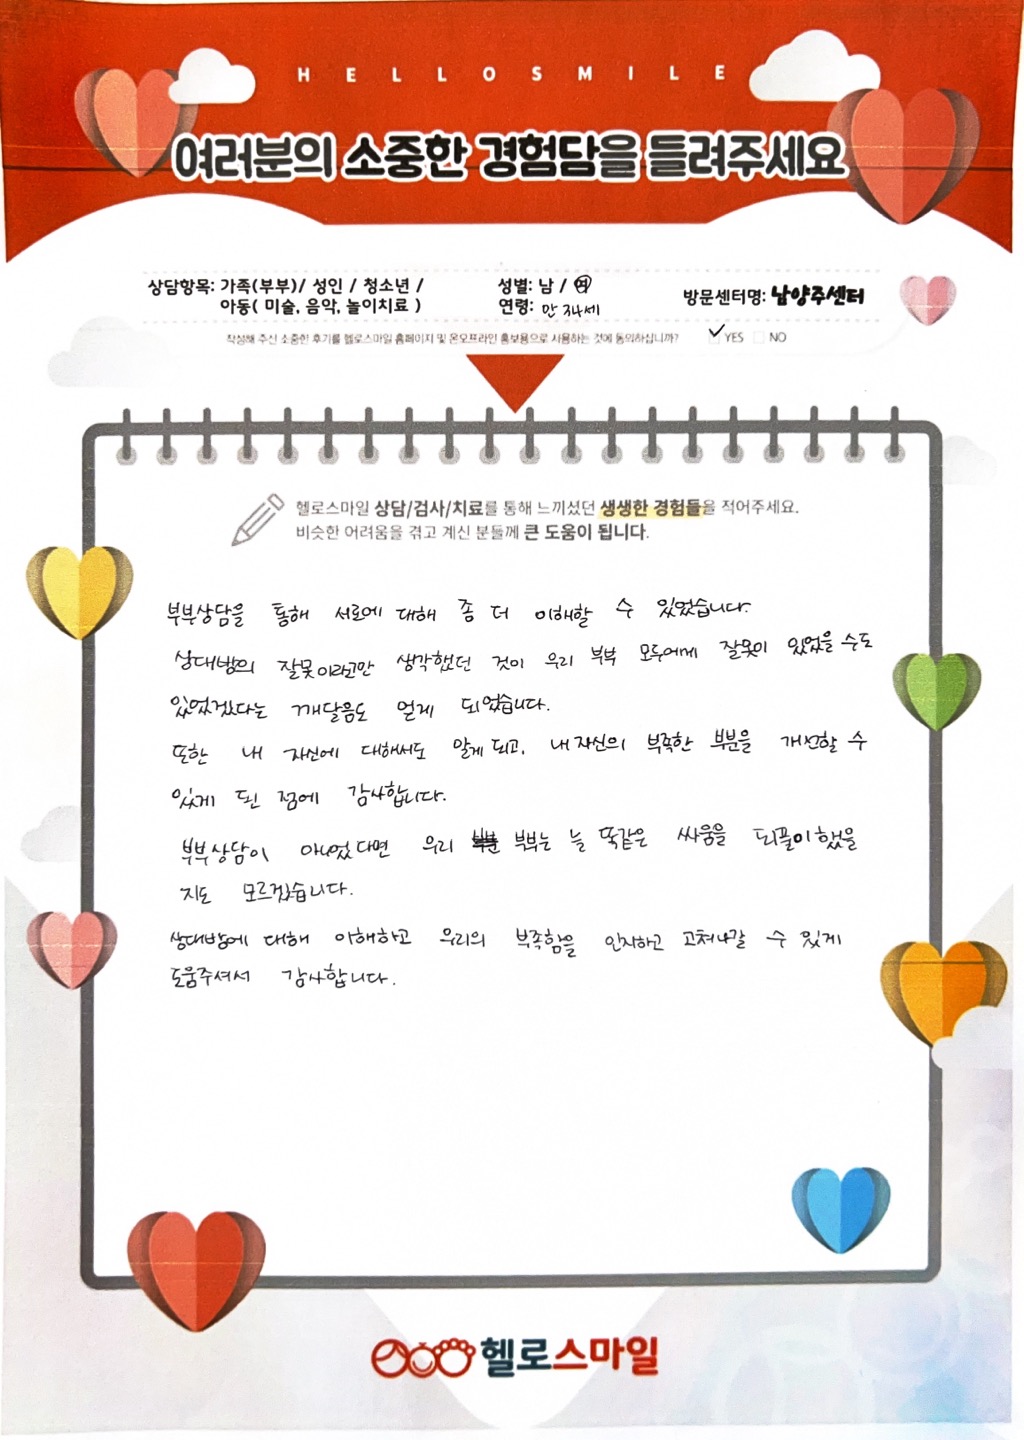 HELLOSMILE
여러분의 소중한 경험담을 들려주세요
상담항목: 가족(부부)/ 성인 / 청소년 /
아동( 미술, 음악, 놀이치료 )
성별: 남 / 여
연령: 만 34세
방문센터명: 남양주센터
작성해 주신 소중한 후기를 헬로스마일 홈페이지 및 온오프라인 홍보용으로 사용하는 것에 동의하십니까? YES NO
헬로스마일 상담/검사/치료를 통해 느끼셨던 생생한 경험들을 적어주세요.
비슷한 어려움을 겪고 계신 분들께 큰 도움이 됩니다.
부부상담을 통해 서로에 대해 좀 더 이해할 수 있었습니다.
상대방의 잘못이라고만 생각했던 것이 우리 부부 모두에게 잘못이 있었을 수도
있었겠다는 깨달음도 얻게 되었습니다.
또한 내 자신에 대해서도 알게 되고, 내 자신의 부족한 부분을 개선할 수
있게 된 점에 감사합니다.
부부상담이 아니었다면 우리 부부는 늘 똑같은 싸움을 되풀이했을
지도 모르겠습니다.
상대방에 대해 이해하고 우리의 부족함을 인지하고 고쳐나갈 수 있게
도움주셔서 감사합니다.
헬로스마일